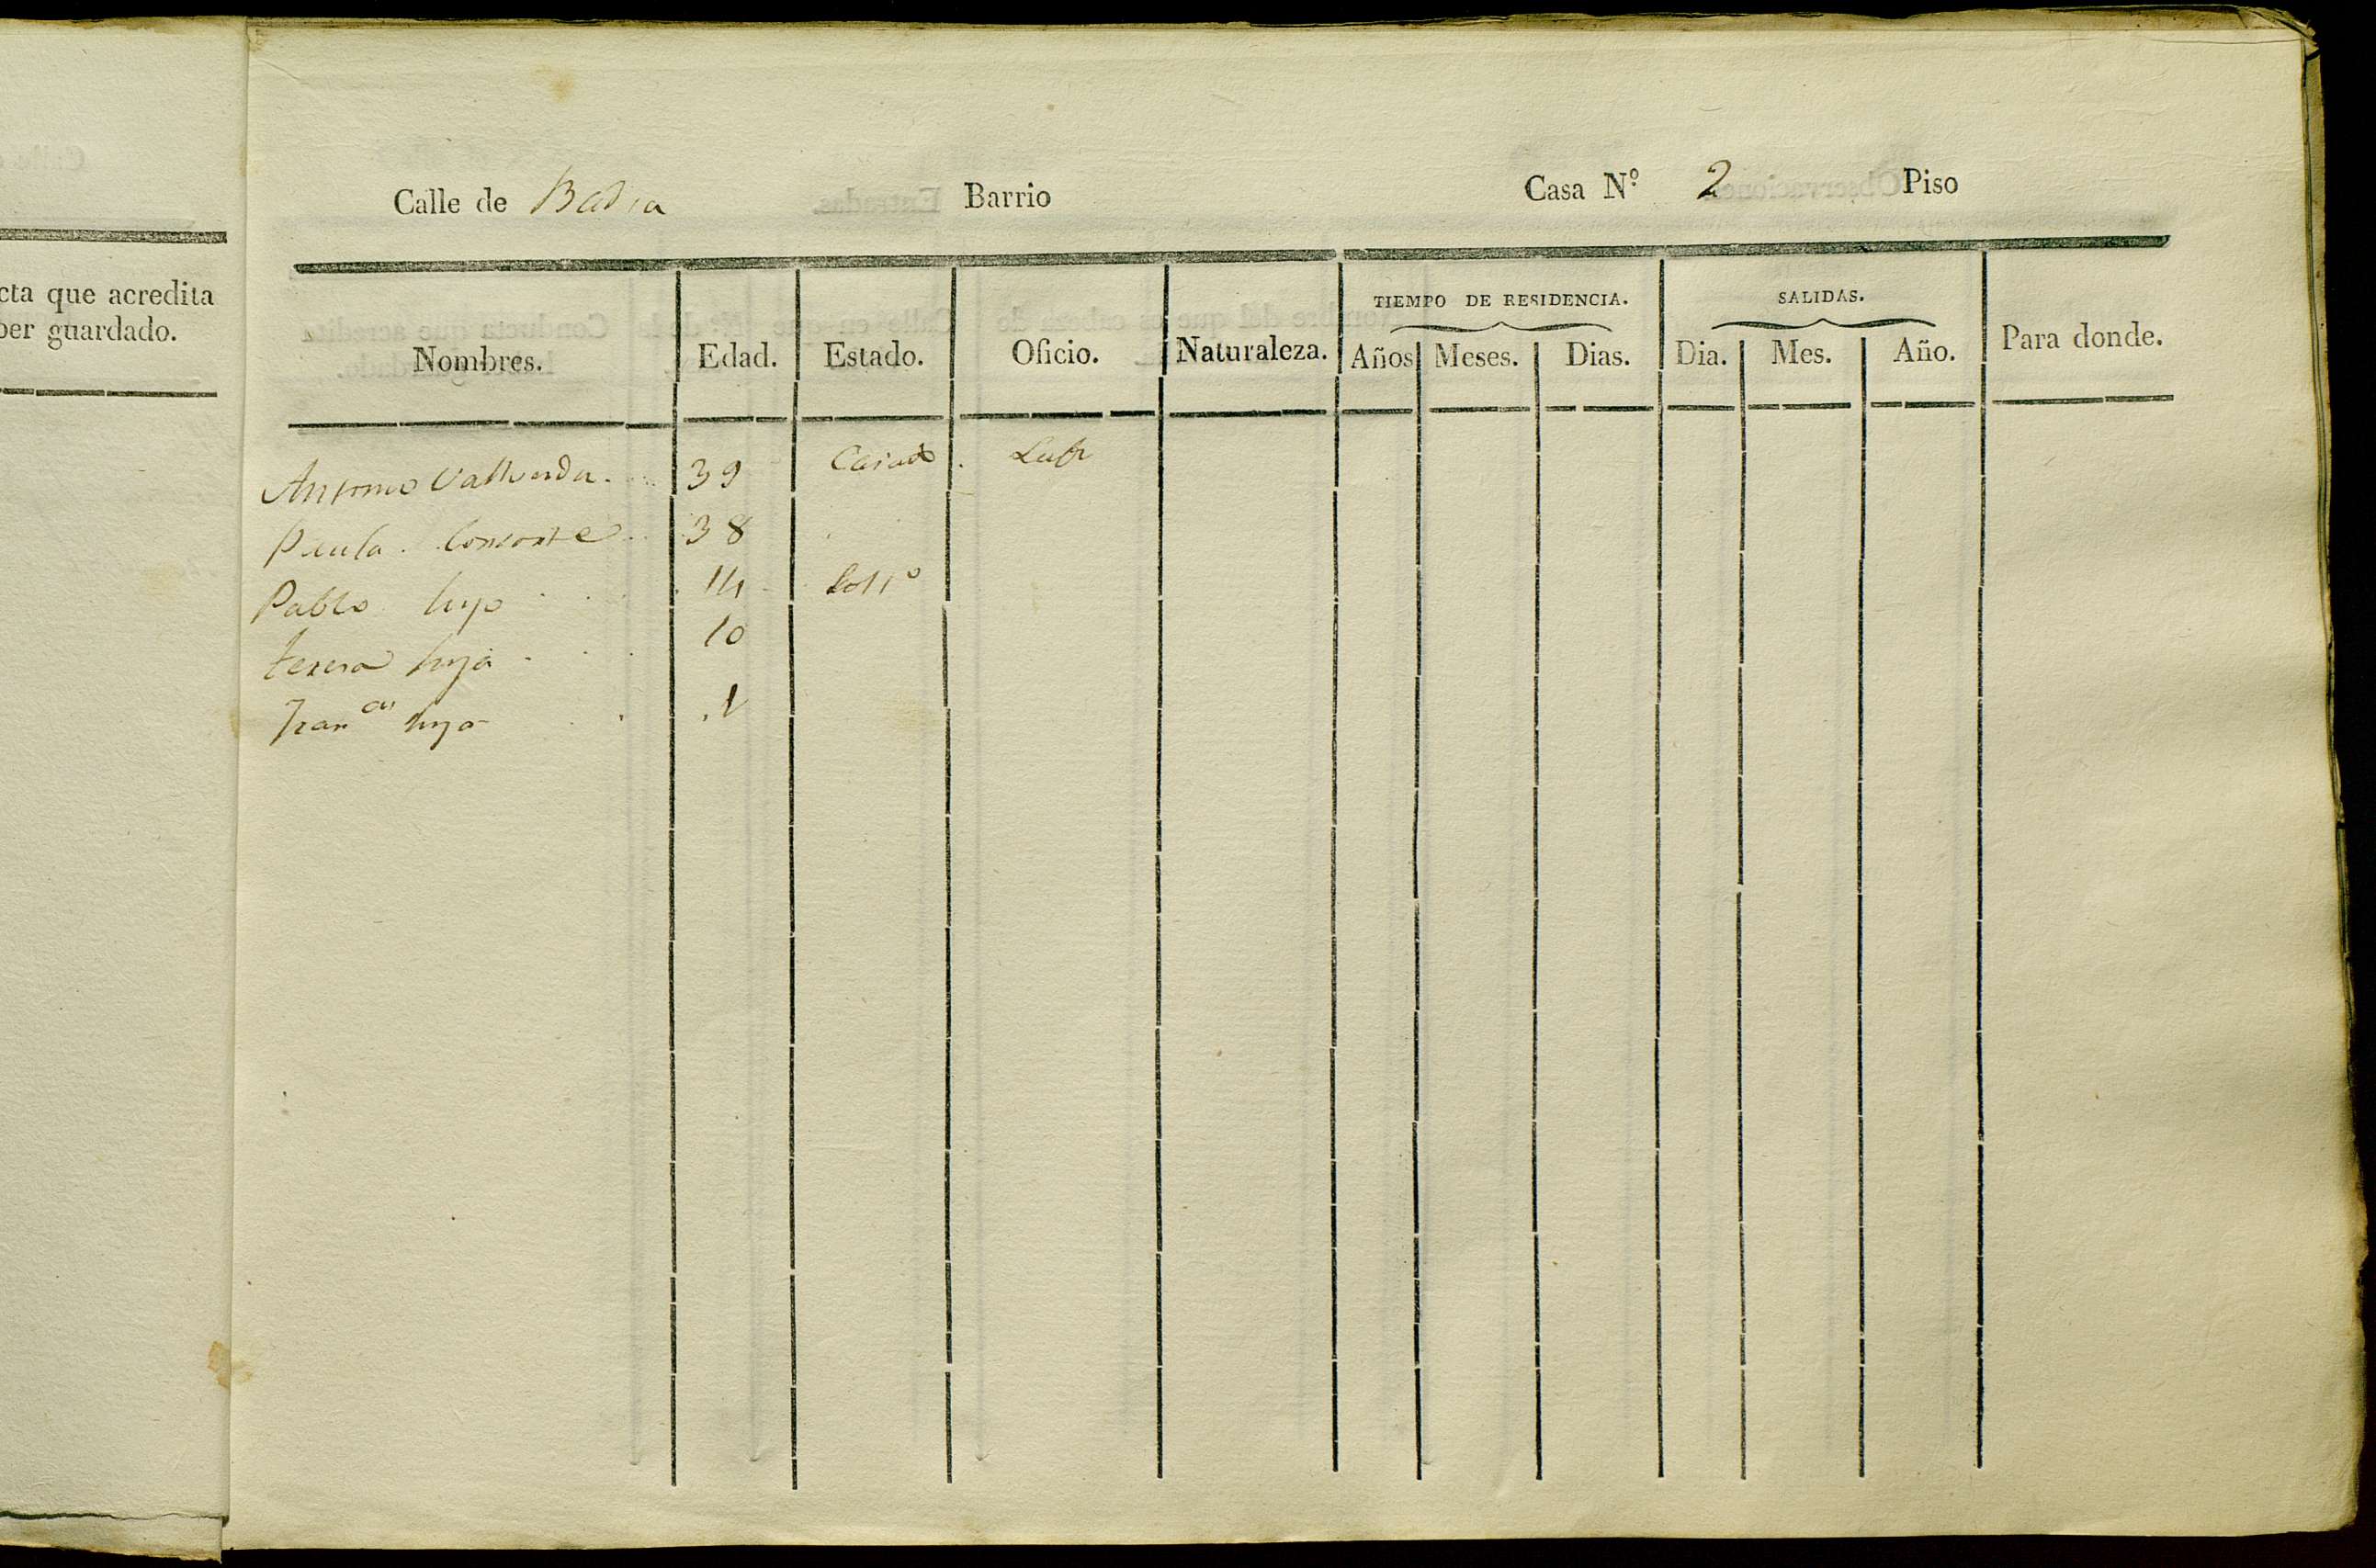 cta que acredita
ber guardado.
Calle de Badia Barrio Casa N.º 2 Piso
TIEMPO DE RESIDENCIA. SALIDAS.
Nombres. Edad. Estado. Oficio. Naturaleza. Años Meses. Dias. Dia. Mes. Año. Para donde.
Antonio 39 Casado
Paula Consorte 38
Pablo hijo 14 Solt.º
Teresa hija 10
Fran.ca hija 1